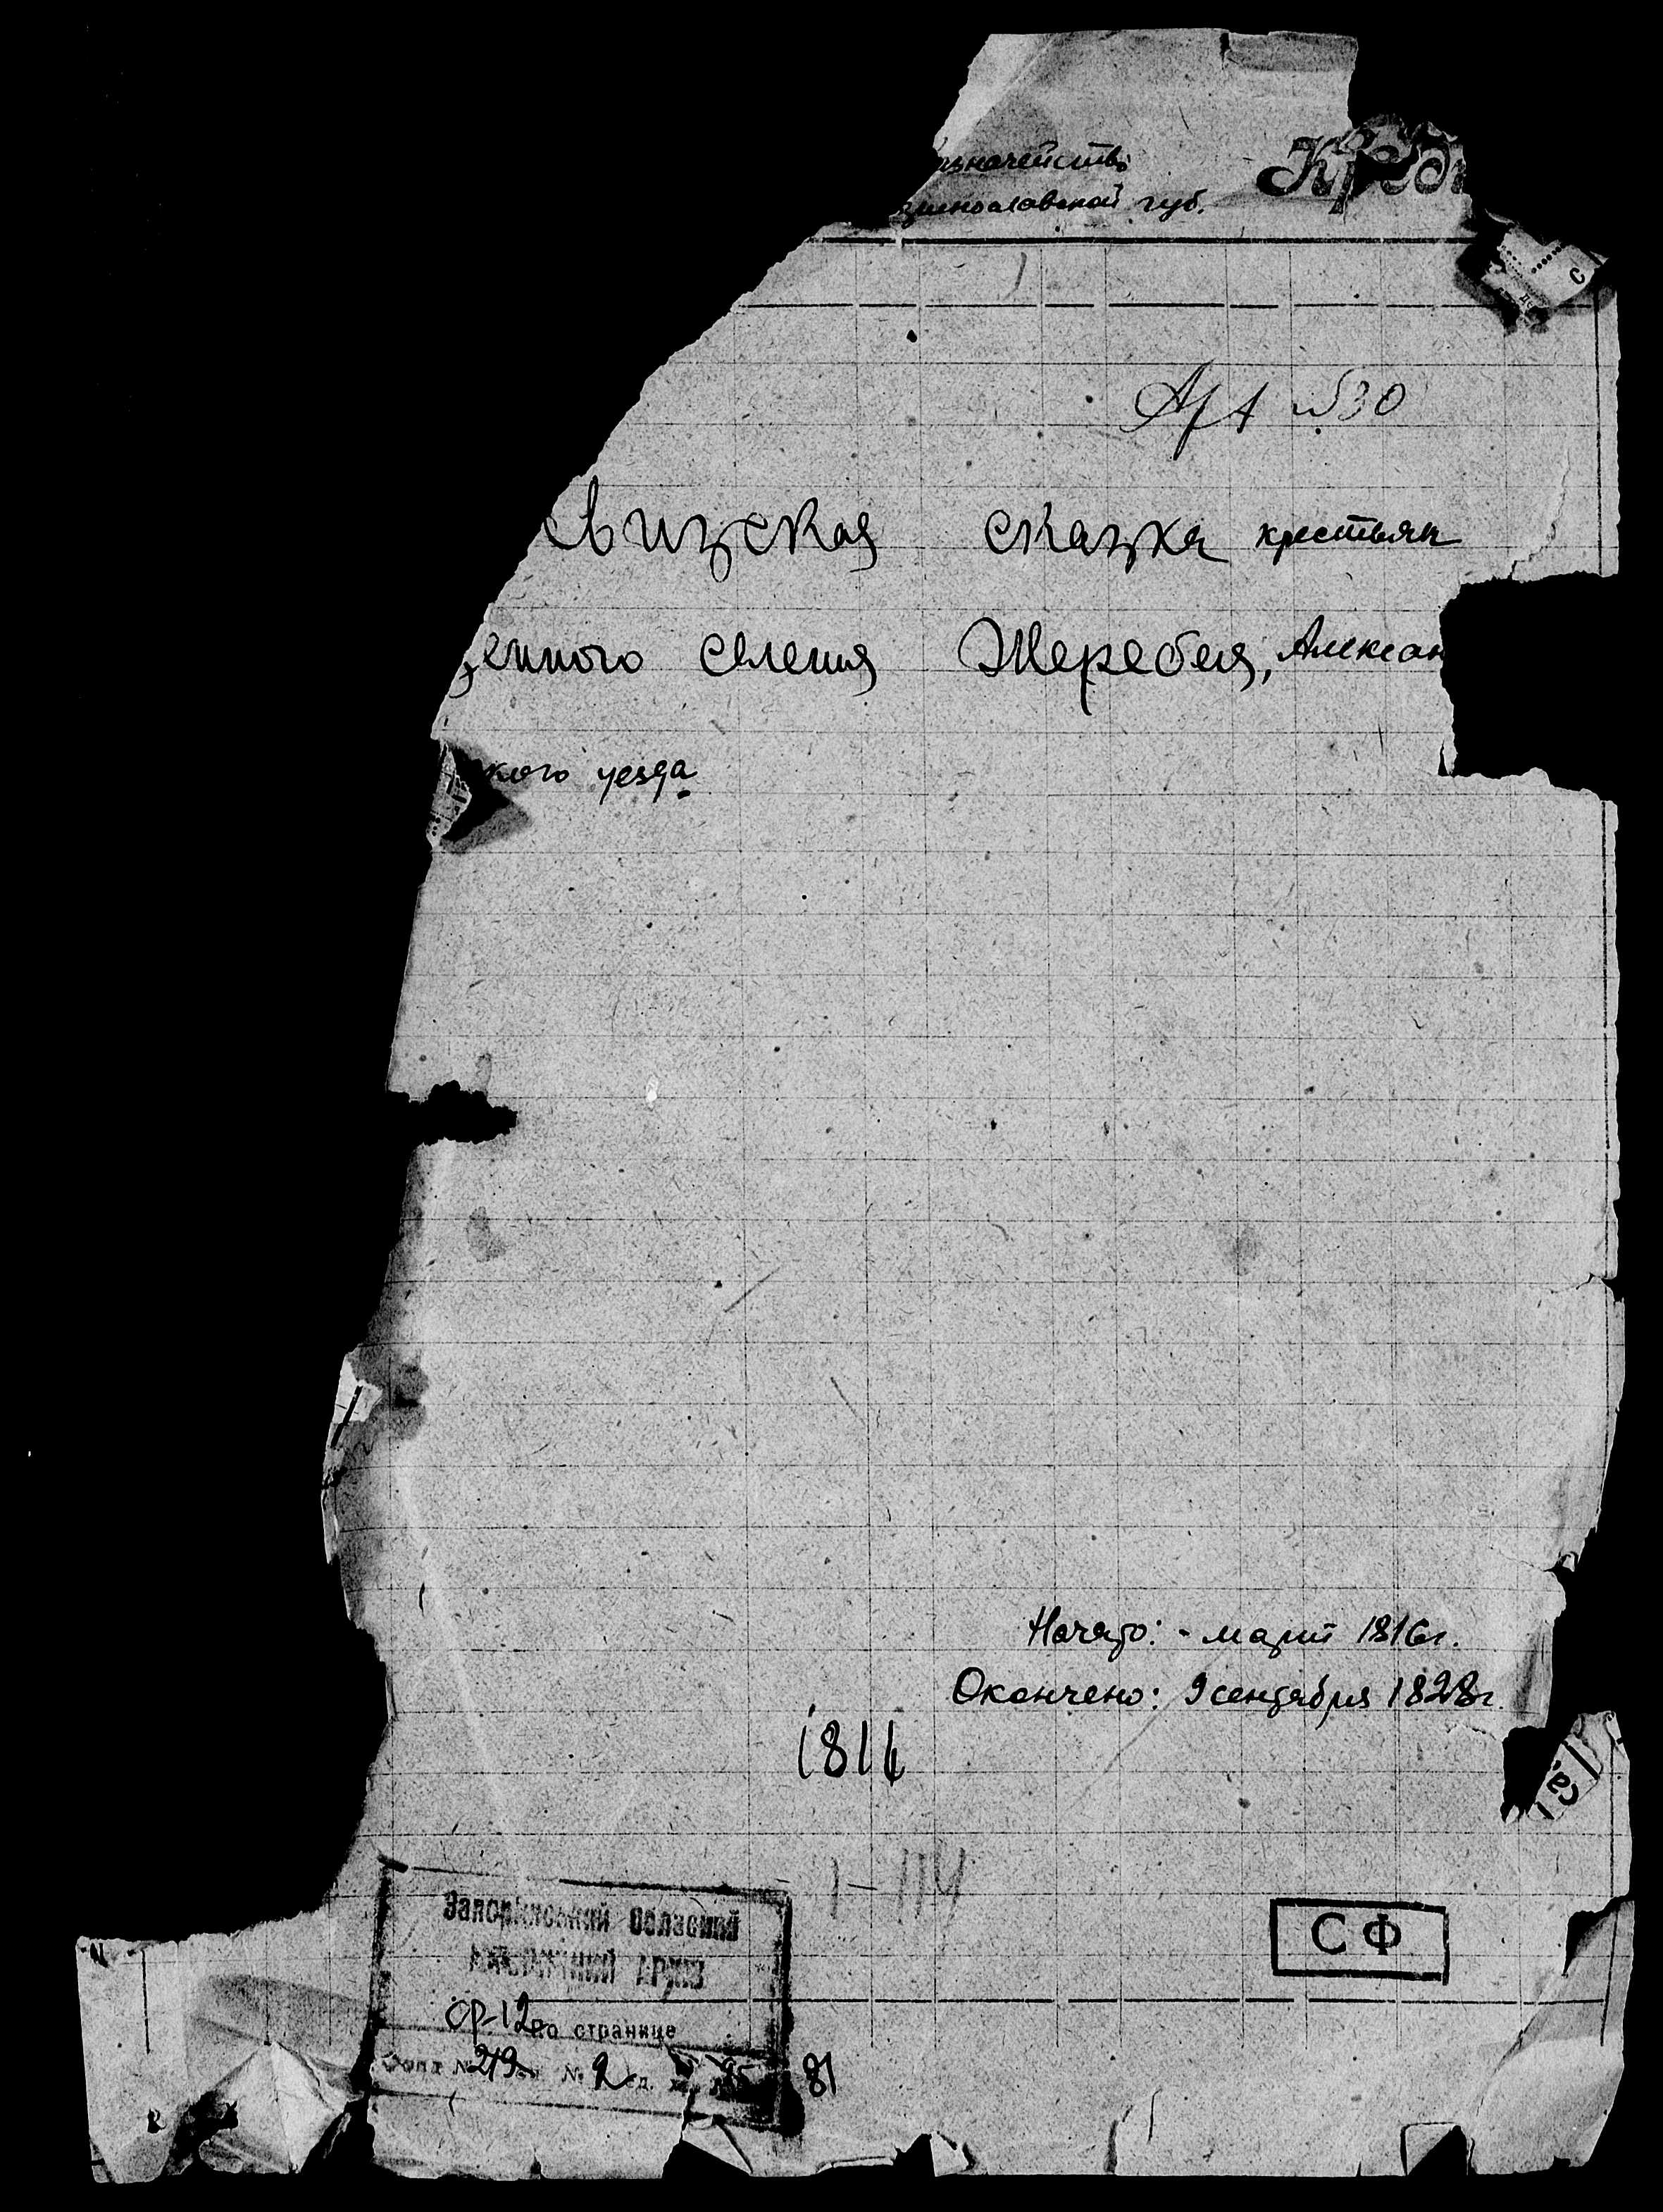 значейство
ринославской губ.
Креди
Арх №30
евизская сказка крестьян
зенного селения Жеребея, Алексан
кого уезда
Начато: - март 1816г.
Окончено: 9 сентября 1828г.
1816
1-114
Запорізький Обласний
АРХІВ
СР-12 по странице
Фонд № 219 № 2 81
СФ